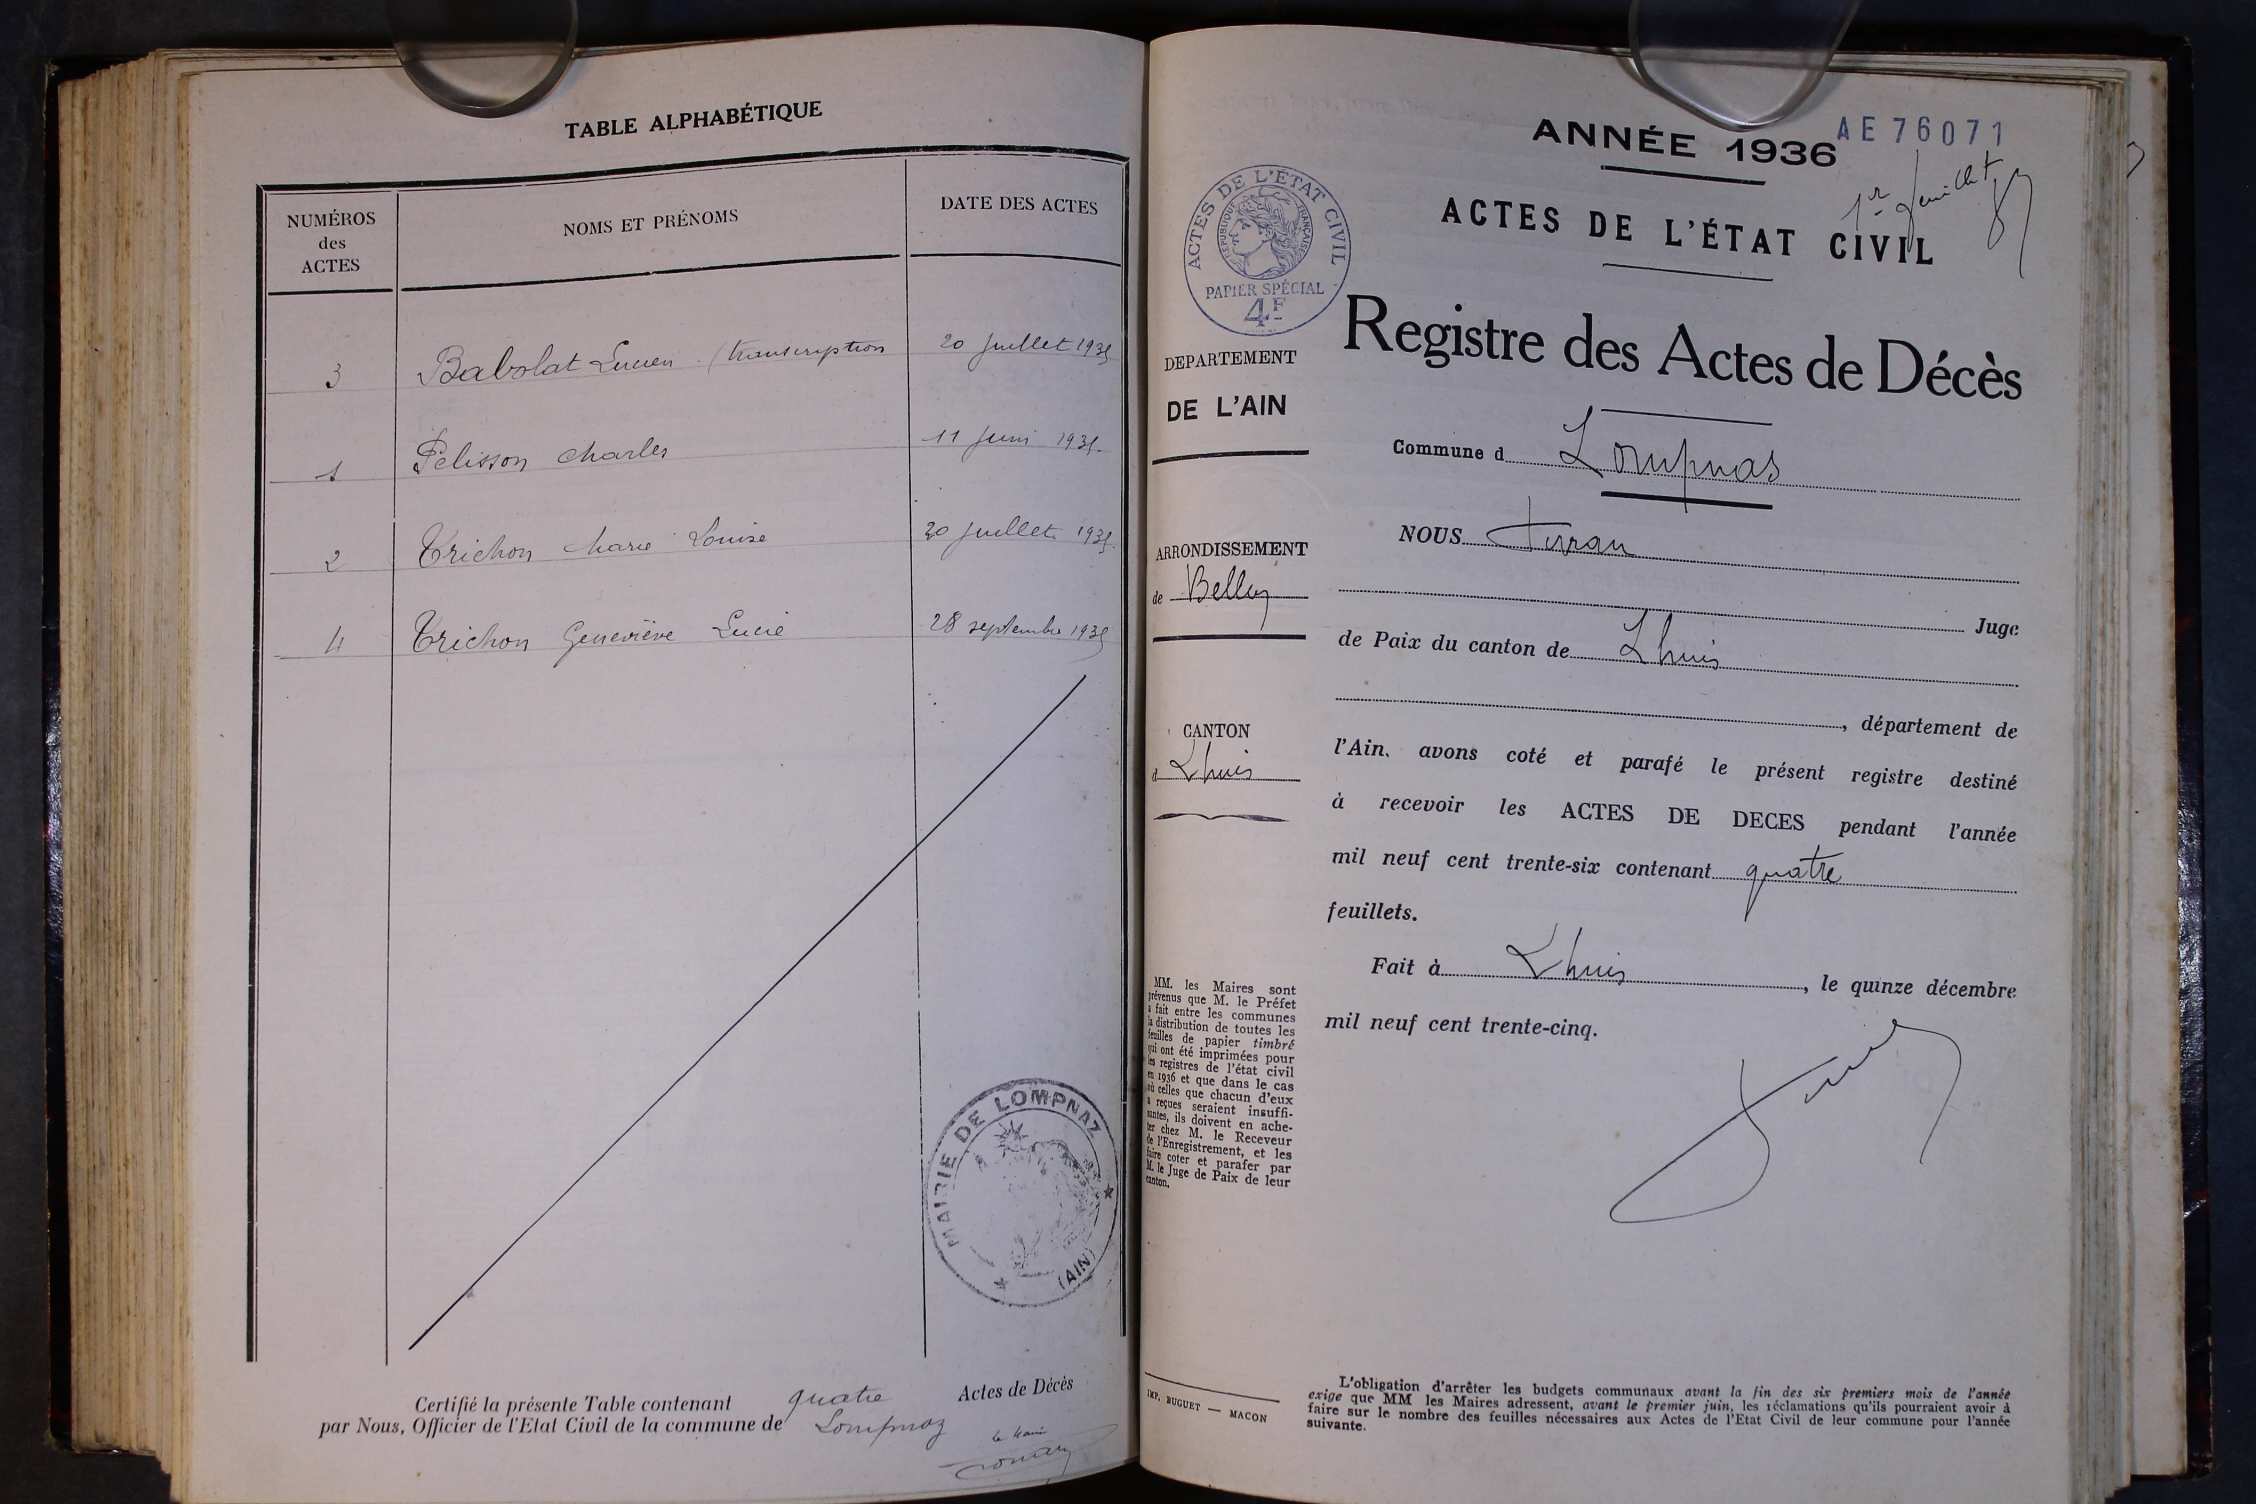 TABLE ALPHABÉTIQUE
NUMÉROS
des
ACTES
NOMS ET PRÉNOMS
DATE DES ACTES
3 Babolat Lucien (transcription 20 juillet 1935
1 Pelisson Charles 11 juin 1935
2 Trichon Marie Louise 20 juillet 1935
4 Trichon Geneviève Lucie 28 septembre 1935
MAIRIE DE LOMPNAZ
(AIN)
Certifié la présente Table contenant quatre Actes de Décès
par Nous, Officier de l'Etat Civil de la commune de Lompnaz
le Maire
ANNÉE 1936
AE 76071
1er feuillet
ACTES DE L'ÉTAT CIVIL
ACTES DE L'ÉTAT CIVIL
RÉPUBLIQUE FRANÇAISE
PAPIER SPÉCIAL
4F
Registre des Actes de Décès
DEPARTEMENT
DE L'AIN
Commune d Lompnas
NOUS
ARRONDISSEMENT
de Belley
Juge
de Paix du canton de Lhuis
, département de
CANTON
d Lhuis
l'Ain, avons coté et parafé le présent registre destiné
à recevoir les ACTES DE DECES pendant l'année
mil neuf cent trente-six contenant quatre
feuillets.
Fait à Lhuis, le quinze décembre
mil neuf cent trente-cinq.
MM. les Maires sont
prévenus que M. le Préfet
a fait entre les communes
la distribution de toutes les
feuilles de papier timbré
qui ont été imprimées pour
les registres de l'état civil
en 1936 et que dans le cas
où celles que chacun d'eux
a reçues seraient insuffi-
santes, ils doivent en ache-
ter chez M. le Receveur
de l'Enregistrement, et les
faire coter et parafer par
M. le Juge de Paix de leur
canton.
IMP. BUGUET — MACON
L'obligation d'arrêter les budgets communaux avant la fin des six premiers mois de l'année
exige que MM les Maires adressent, avant le premier juin, les réclamations qu'ils pourraient avoir à
faire sur le nombre des feuilles nécessaires aux Actes de l'Etat Civil de leur commune pour l'année
suivante.